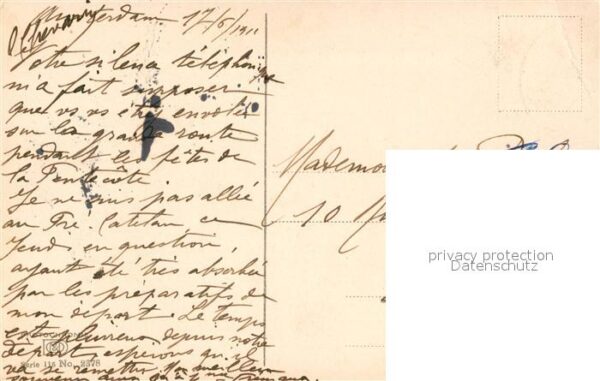 Amsterdam 17/6/1911
Votre silence téléphonique
m'a fait supposer
que vs vs étiez envolée
sur la grande route
pendant les fêtes de
la Pentecôte
Je ne suis pas allée
au Tre. Catalan ce
Jeudi en question,
ayant été très absorbée
par les préparatifs de
mon départ. Le temps
est pluvieux depuis notre
départ, espérons qu'il
va se remettre.
Serie 116 No. 2378
Mademoi
10
privacy protection
Datenschutz